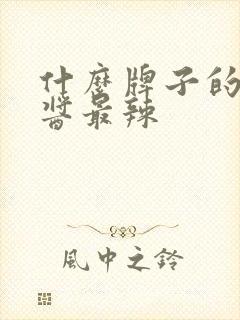 什麼牌子的
醬最辣
風中之鈴